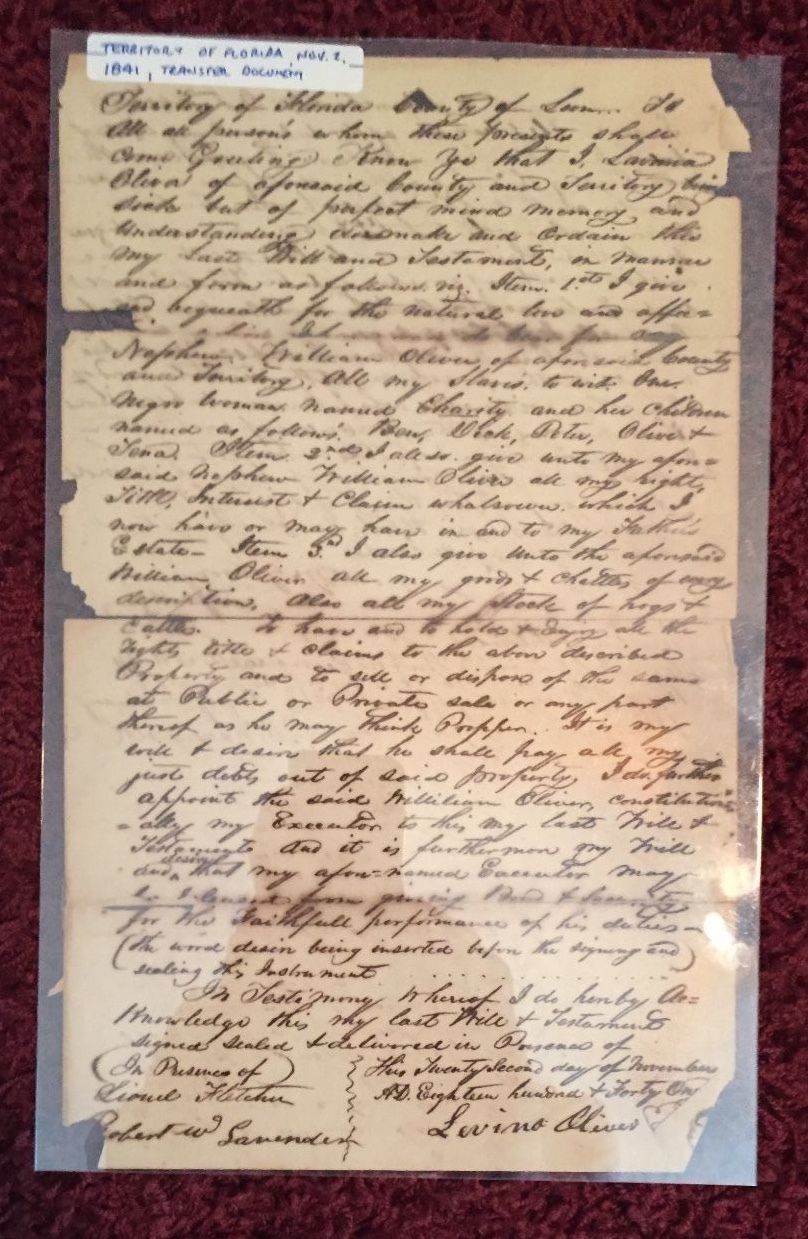 TERRITORY OF FLORIDA, NOV. 2,
1841, TRANSFER DOCUMENT
Territory of Florida County of Leon... To
All all person's whom these presents shall
come Greeting Know Ye that I, Lavinia
Oliver of aforesaid County and Territory being
sick but of perfect mind memory and
Understanding do make and Ordain this
my Last Will and Testament, in manner
and form as follows. viz. Item. 1.st I give
and bequeath for the natural love and affec=
for my
Nephew. William Oliver of aforesaid County
and Territory, All my Slaves. to wit. One.
Negro Woman named Charity and her Children
named as follows. Ben, Dick, Peter, Olive +
Tena. Item 2nd I also give unto my afore=
said Nephew William Oliver all my right,
Title, Interest + Claim whatsoever which I
now have or may have in and to my Father's
Estate- Item 3rd I also give Unto the aforesaid
William Oliver all my goods + Chattles of every
description, Also all my Stock of hogs +
Cattle. To have and to hold + Enjoy all the
rights title + claims to the above described
Property and to sell or dispose of the same
at Public or Private sale or any part
thereof as he may think Propper. It is my
will + desire that he shall pay all my
just debts out of said property, I do further
appoint the said William Oliver, constitution
=ally my Executor to this my last Will +
Testament And it is furthermore my Will
and desire that my afore=named Executor may
from giving Bond + Security
for the Faithfull performance of his duties-
(the word desire being inserted before the signing and)
sealing this Instrument . . . . . . . . . . . . .
In Testimony Whereof I do hereby Ac=
Knowledge this my last Will + Testament
signed sealed + delivered in Presence of
(In Presence of) This Twenty Second day of November
Lionel Fletcher A.D. Eighteen hundred + Forty One
Robert W Lavender Levina Oliver